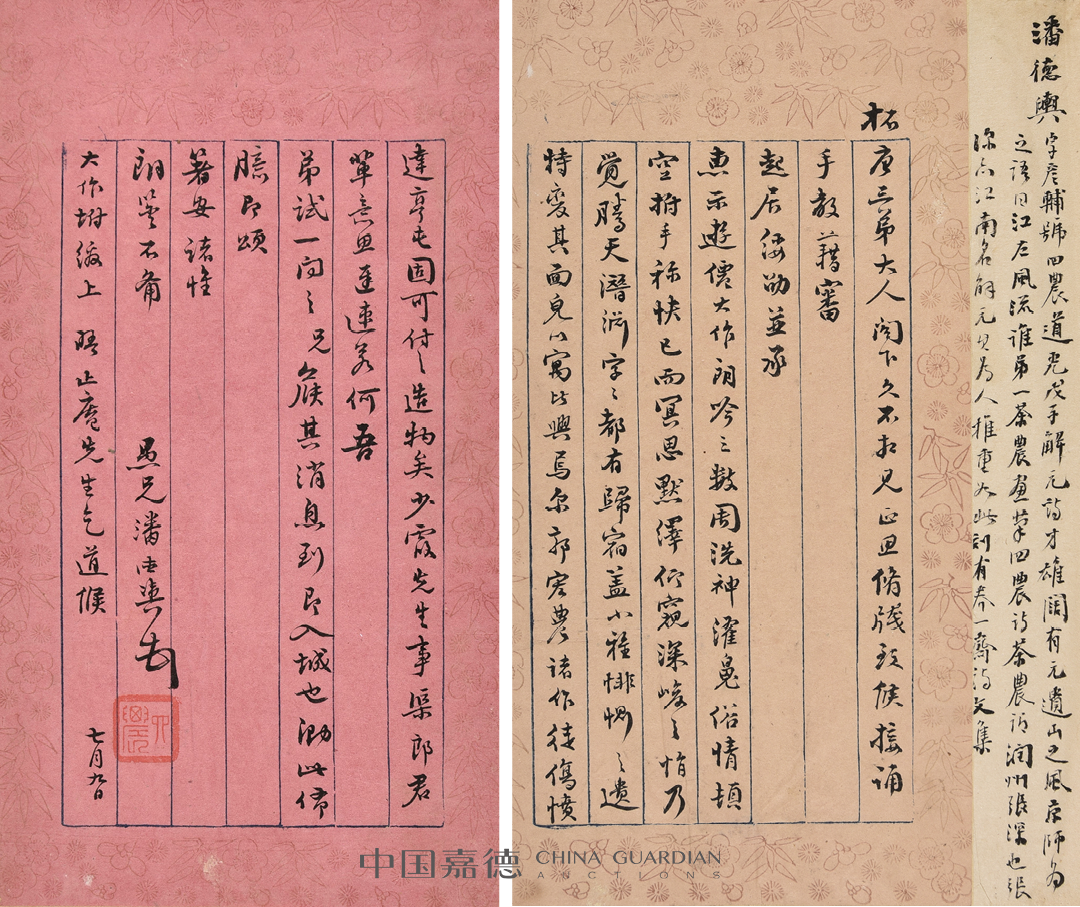 潘德輿
字彥輔號四農道光戊子解元詩才雄闊有元遺山之風京師為
之語曰江左風流誰第一茶農畫筆四農詩茶農即潤州張深也張
深亦江南名解元其為人推重如此刻有養一齋詩文集
柘
唐三弟大人閣下久不相見正思脩牋致候接誦
手教藉審
起居佞勛並承
惠示遊僊大作朗吟三數周洗神濯魄俗情頓
空拊手稱快已而冥思默繹仰窺深峻之惰乃
覺騰天潛淵字字都有歸宿蓋小雅悱惻之遺
特變其面皃以寓比興焉爾郭宏農諸作徒傷憤
達亨屯固可付之造物矣少霞先生事渠郎君
單意思遲速若何吾
弟試一問之兄候其消息到即入城也泐此佈
臆即頌
著安諸惟
朗鑒不備
愚兄潘德輿頓首
大作坿繳上 晤止庵先生乞道候
七月九日
中国嘉德 CHINA GUARDIAN
AUCTIONS